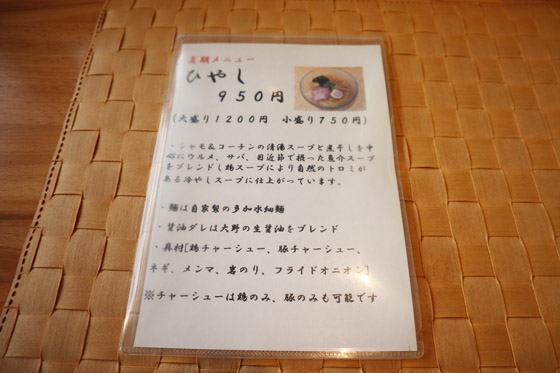 夏麺メニュー
ひやし
950円
(大盛り1200円 小盛り750円)
・シャモ&コーチンの清湯スープと煮干しを中
心にウルメ、サバ、目近節で摂った魚介スープ
をブレンドし鶏スープにより自然のトロミが
ある冷やしスープに仕上がっています。
・麺は自家製の多加水細麺
・醤油ダレは大野の生醤油をブレンド
・具材[鶏チャーシュー、豚チャーシュー、
ネギ、メンマ、岩のり、フライドオニオン]
※チャーシューは鶏のみ、豚のみも可能です